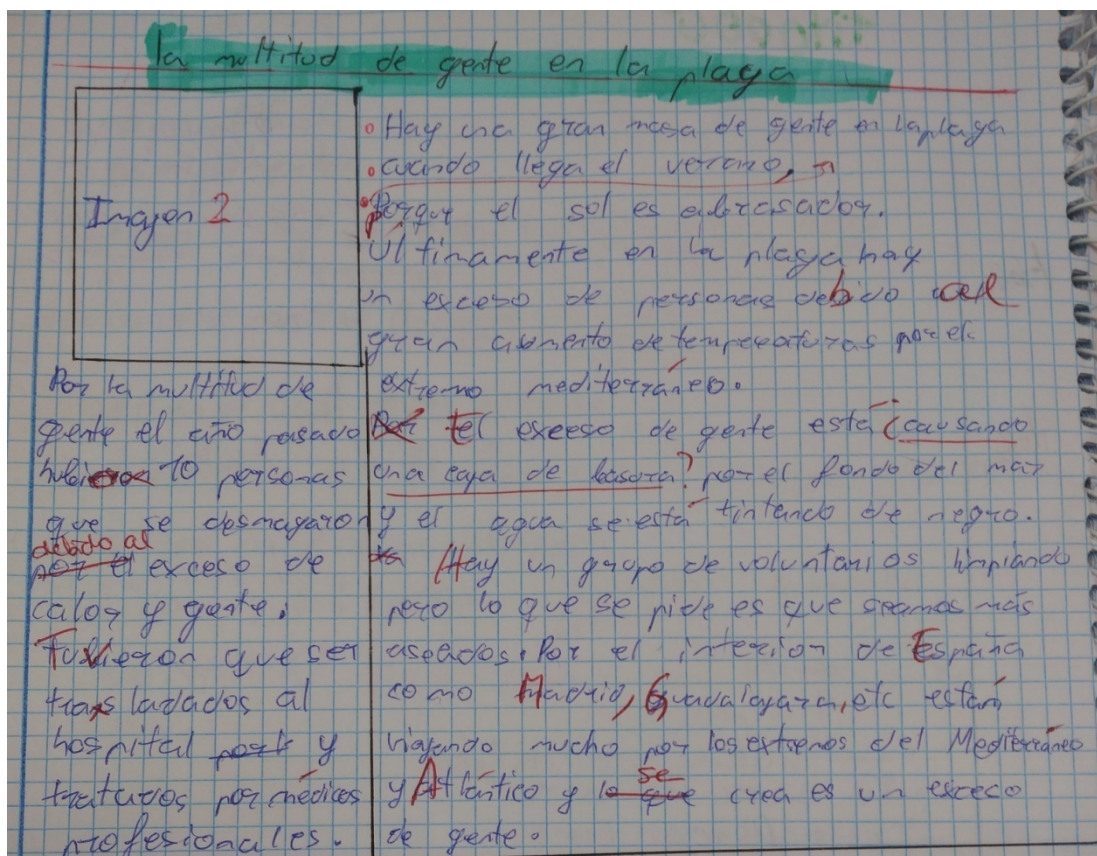 la multitud de gente en la playa
Imajen 2
Por la multitud de
gente el año pasado
hubieron 10 personas
que se desmayaron
debido al
por el exceso de
calor y gente.
Tuvieron que ser
trasladados al
hospital y
tratados por médicos
profesionales.
Hay una gran masa de gente en la playa
cuando llega el verano,
porque el sol es abrasador.
Últimamente en la playa hay
un exceso de personas debido al
gran aumento de temperaturas por el
extremo mediterráneo.
Por El exceso de gente está ¿causando
una capa de basura? por el fondo del mar
y el agua se está tintando de negro.
Hay un grupo de voluntarios limpiando
pero lo que se pide es que seamos más
aseados. Por el interior de España
como Madrid, Guadalajara, etc están
viajando mucho por los extremos del Mediterráneo
se
y Atlántico y lo que crea es un exceco
de gente.